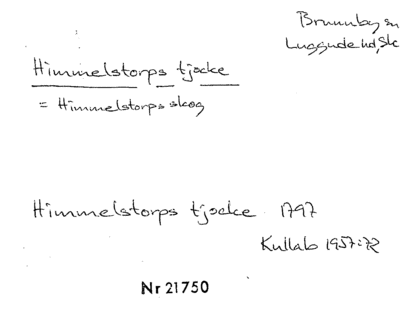 Brunnby sn
Luggude hd, Sk
Himmelstorps tjocke
= Himmelstorps skog
Himmelstorps tjocke 1797
Kullab 1957:72
Nr 21750